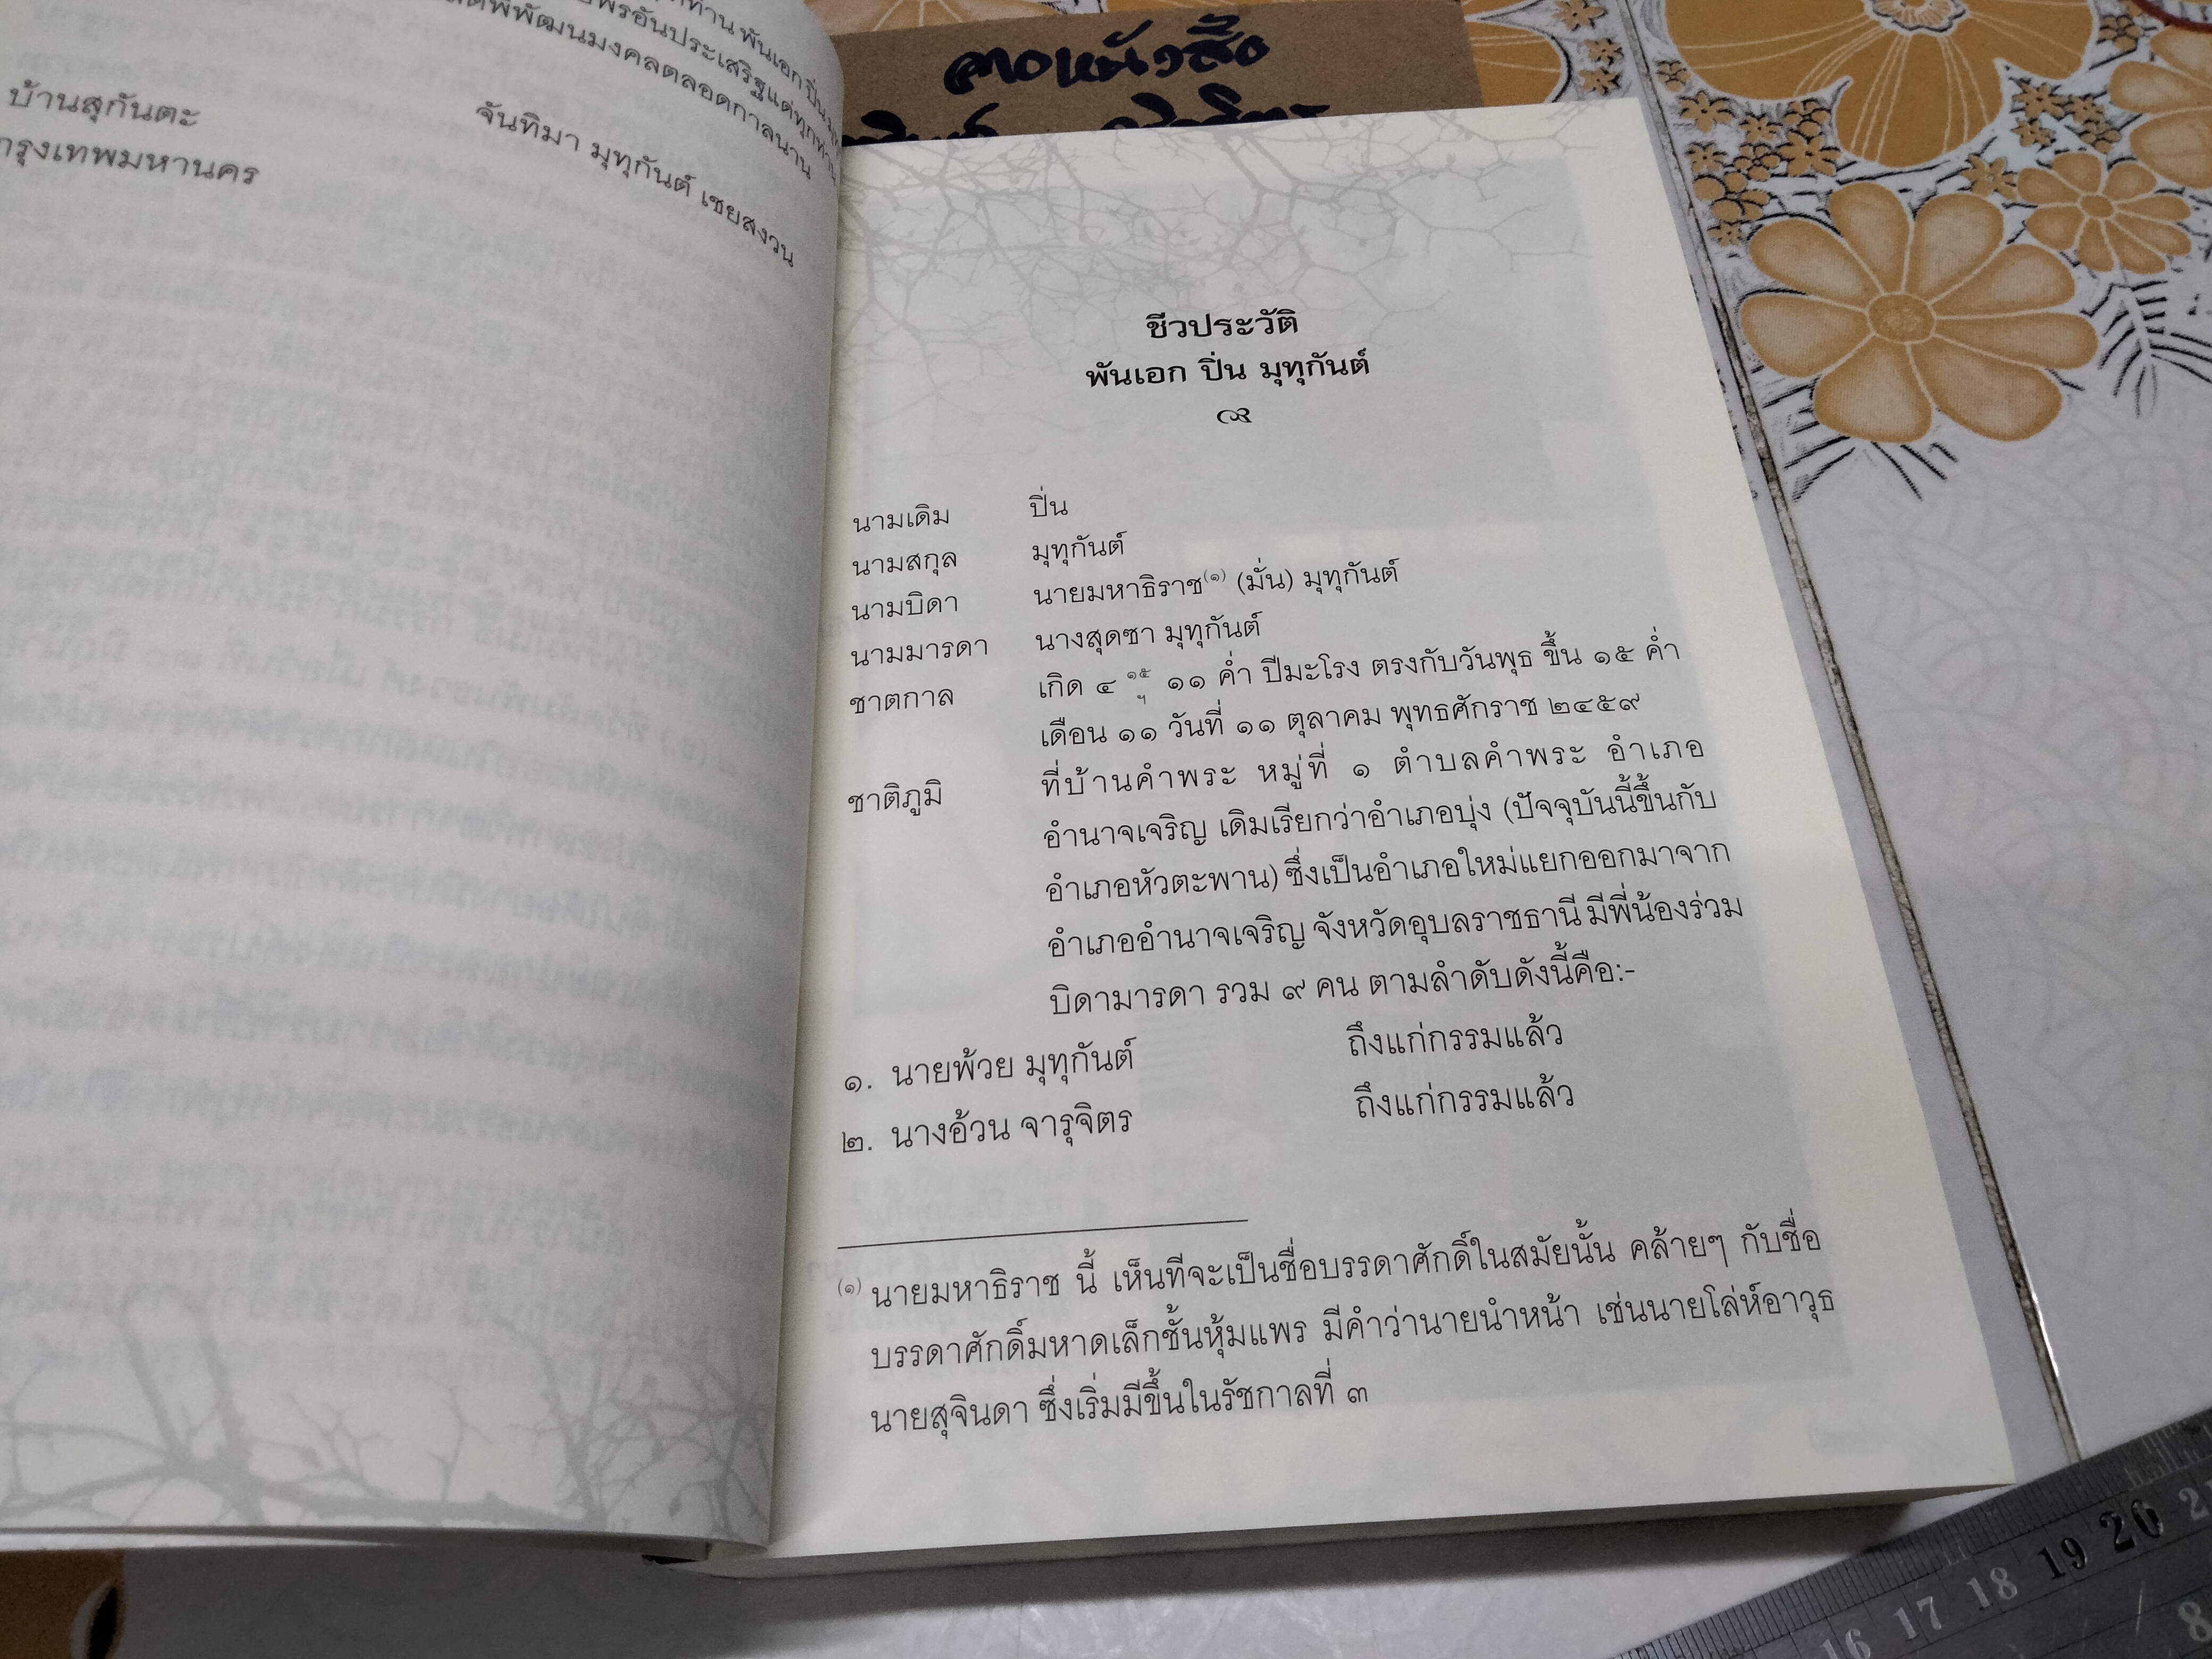 พันเอก ปิ่น
พรอันประเสริฐแด่ทุกท่าน
พิพัฒนมงคลตลอดกาลนาน
จันทิมา มุทุกันต์ เชยสงวน
บ้านสุกันตะ
กรุงเทพมหานคร
ชีวประวัติ
พันเอก ปิ่น มุทุกันต์
นามเดิม ปิ่น
นามสกุล มุทุกันต์
นามบิดา นายมหาธิราช⁽๑⁾ (มั่น) มุทุกันต์
นามมารดา นางสุดซา มุทุกันต์
ชาตกาล เกิด ๔ ๑๕ ฯ ๑๑ ค่ำ ปีมะโรง ตรงกับวันพุธ ขึ้น ๑๕ ค่ำ
เดือน ๑๑ วันที่ ๑๑ ตุลาคม พุทธศักราช ๒๔๕๙
ชาติภูมิ ที่บ้านคำพระ หมู่ที่ ๑ ตำบลคำพระ อำเภอ
อำนาจเจริญ เดิมเรียกว่าอำเภอบุ่ง (ปัจจุบันนี้ขึ้นกับ
อำเภอหัวตะพาน) ซึ่งเป็นอำเภอใหม่แยกออกมาจาก
อำเภออำนาจเจริญ จังหวัดอุบลราชธานี มีพี่น้องร่วม
บิดามารดา รวม ๙ คน ตามลำดับดังนี้คือ:-
๑. นายพ้วย มุทุกันต์ ถึงแก่กรรมแล้ว
๒. นางอ้วน จารุจิตร ถึงแก่กรรมแล้ว
(๑) นายมหาธิราช นี้ เห็นทีจะเป็นชื่อบรรดาศักดิ์ในสมัยนั้น คล้ายๆ กับชื่อ
บรรดาศักดิ์มหาดเล็กชั้นหุ้มแพร มีคำว่านายนำหน้า เช่นนายโล่ห์อาวุธ
นายสุจินดา ซึ่งเริ่มมีขึ้นในรัชกาลที่ ๓
16 17 18 19 20 2
8